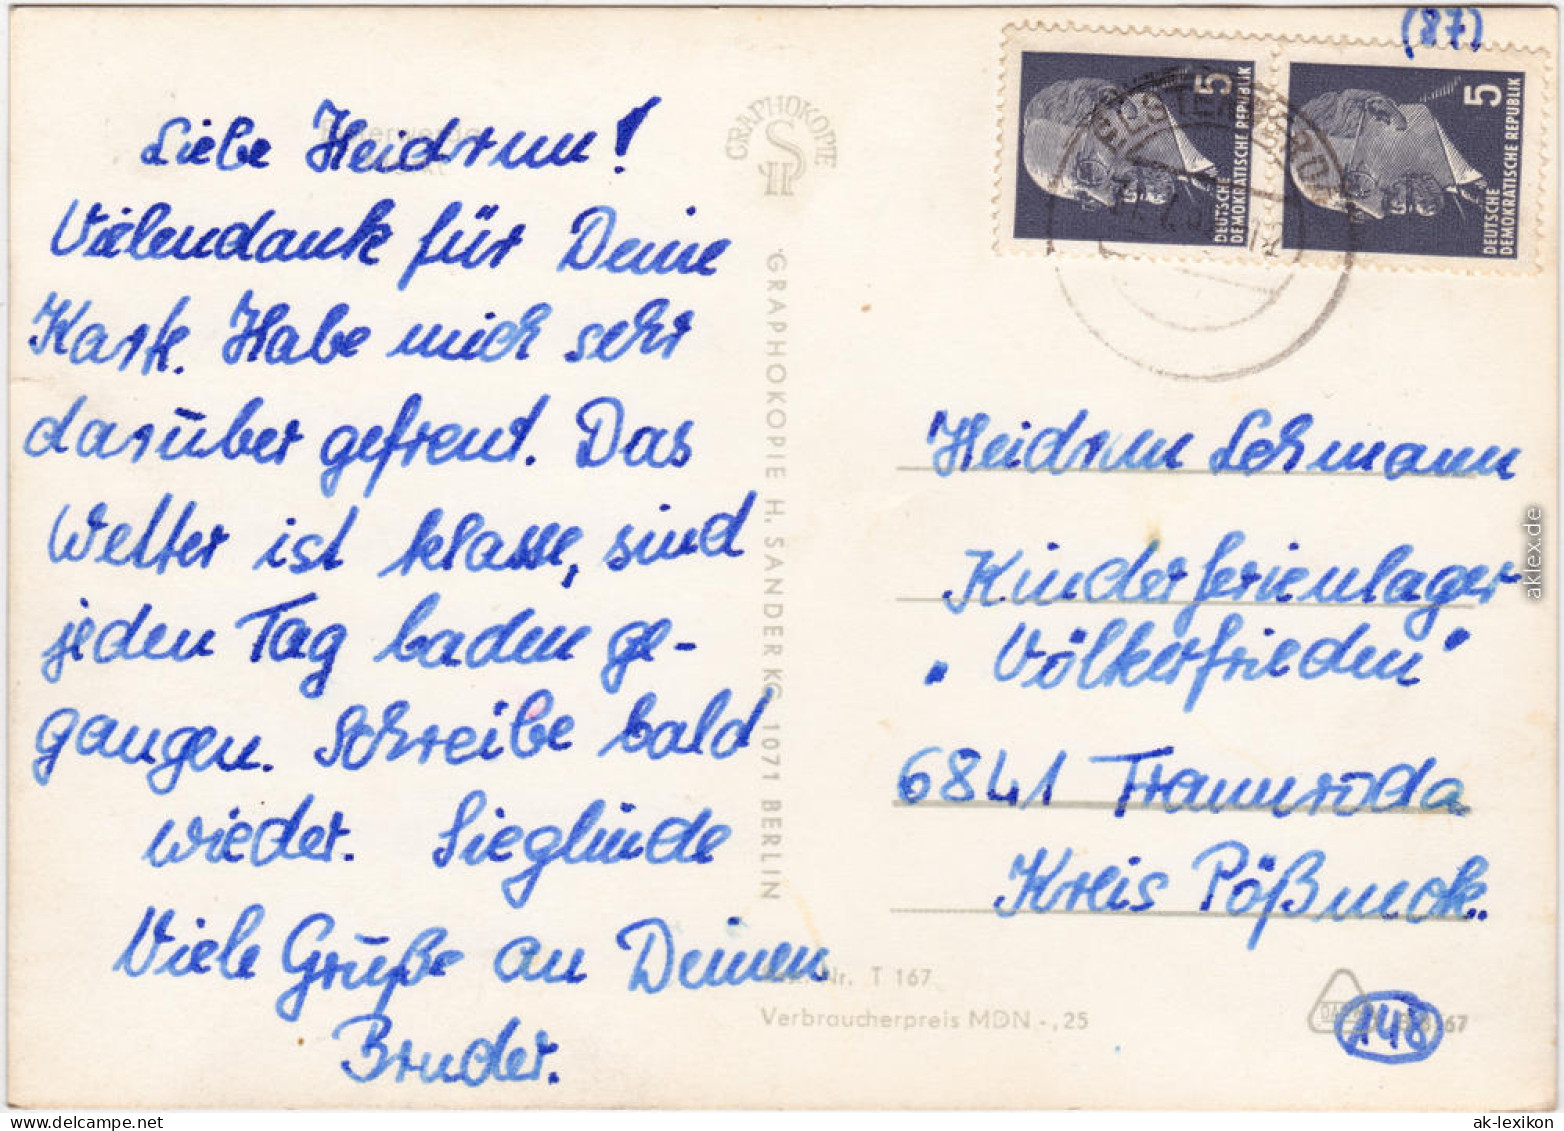 Liebe Heidrun!
Vielendank für Deine
Karte. Habe mich sehr
darüber gefreut. Das
Wetter ist klasse, sind
jeden Tag baden ge-
gangen. Schreibe bald
wieder. Sieglinde
Viele Grüße an Deinen
Bruder.
GRAPHOKOPIE
H S
GRAPHOKOPIE H. SANDER KG 1071 BERLIN
(87)
5
DEUTSCHE
DEMOKRATISCHE REPUBLIK
5
DEUTSCHE
DEMOKRATISCHE REPUBLIK
Heidrun Lehmann
Kinderferienlager
"Völkerfrieden"
6841 Trannroda
Kreis Pößneck.
Nr. T 167
Verbraucherpreis MDN -,25
148
67
akpool.net
ak-lexikon
aklex.de